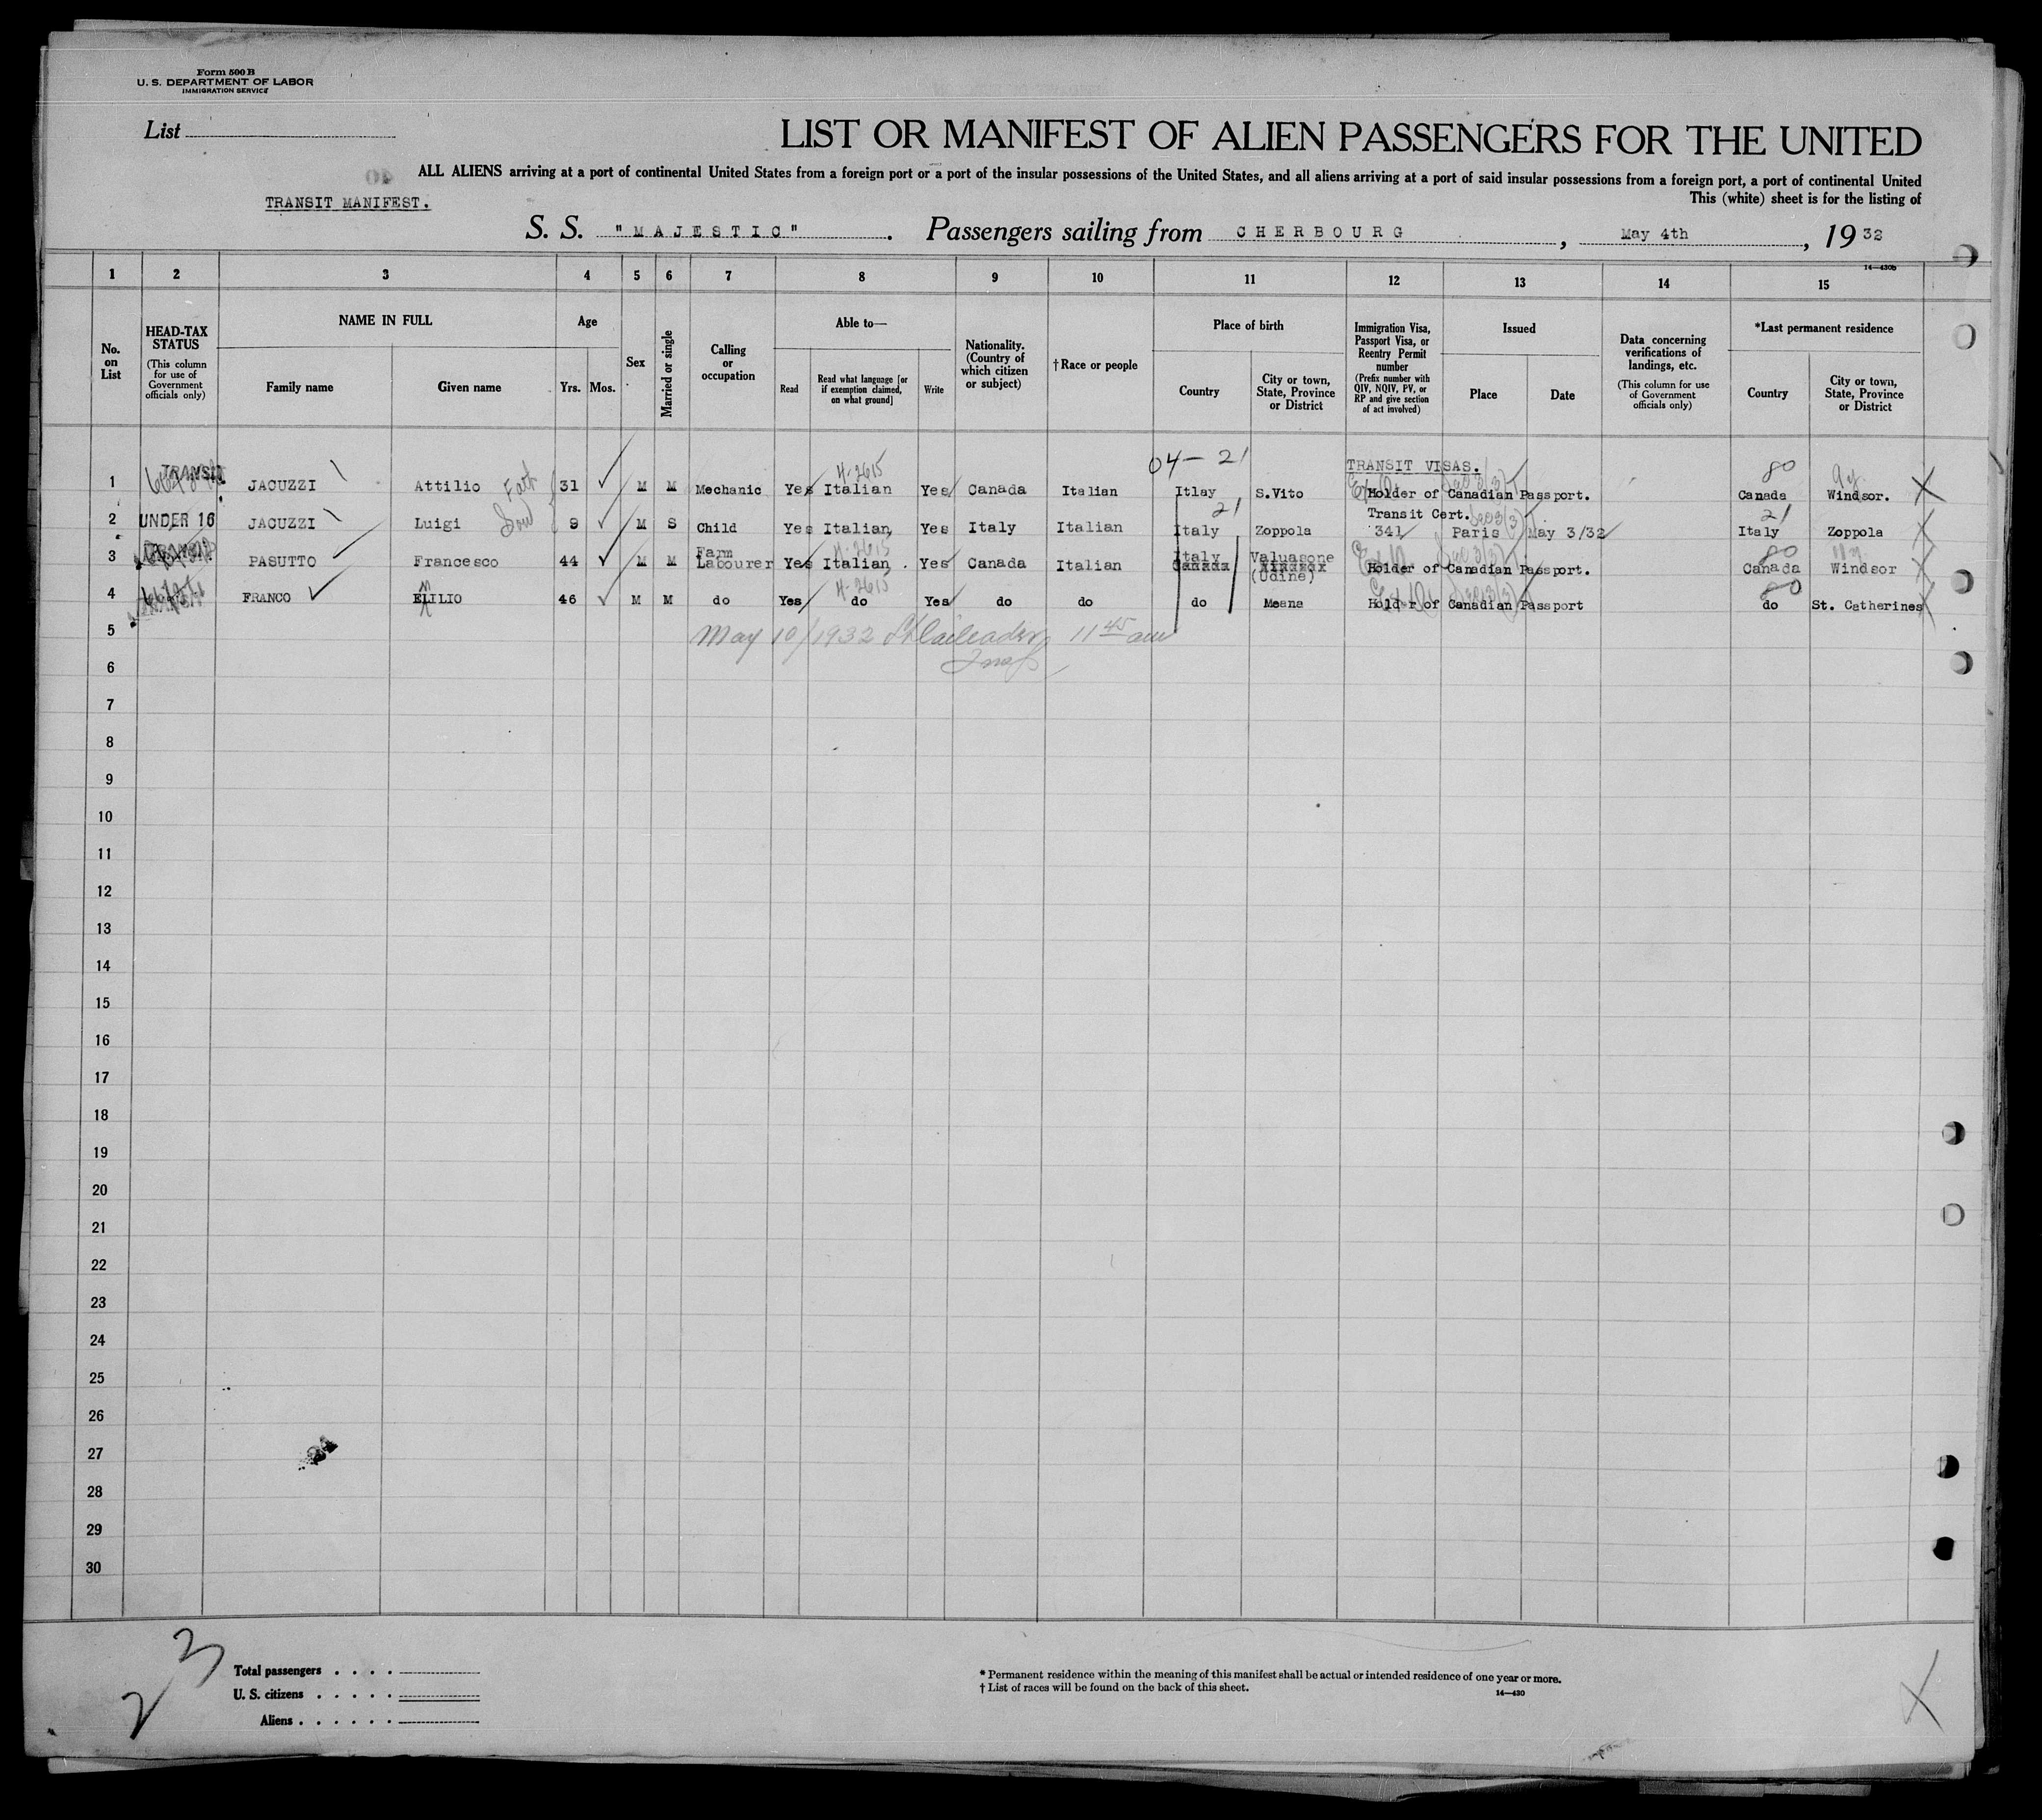 Form 500 B
U. S. DEPARTMENT OF LABOR
IMMIGRATION SERVICE
List
LIST OR MANIFEST OF ALIEN PASSENGERS FOR THE UNITED
ALL ALIENS arriving at a port of continental United States from a foreign port or a port of the insular possessions of the United States, and all aliens arriving at a port of said insular possessions from a foreign port, a port of continental United
This (white) sheet is for the listing of
TRANSIT MANIFEST.
S. S. "MAJESTIC". Passengers sailing from CHERBOURG, May 4th, 1932
14—430b
1 2 3 4 5 6 7 8 9 10 11 12 13 14 15
No. on List
HEAD-TAX STATUS
(This column for use of Government officials only)
NAME IN FULL
Family name
Given name
Age
Yrs.
Mos.
Sex
Married or single
Calling or occupation
Able to—
Read
Read what language [or if exemption claimed, on what ground]
Write
Nationality. (Country of which citizen or subject)
†Race or people
Place of birth
Country
City or town, State, Province or District
Immigration Visa, Passport Visa, or Reentry Permit number
(Prefix number with QIV, NQIV, PV, or RP and give section of act involved)
Issued
Place
Date
Data concerning verifications of landings, etc.
(This column for use of Government officials only)
*Last permanent residence
Country
City or town, State, Province or District
4-2615
04-21
TRANSIT VISAS.
80
1 TRANSIT JACUZZI Attilio 31 M M Mechanic Yes Italian Yes Canada Italian Itlay S.Vito Holder of Canadian Passport. Canada Windsor.
21 Transit Cert. 21
2 UNDER 16 JACUZZI Luigi Son 9 M S Child Yes Italian, Yes Italy Italian Italy Zoppola 341 Paris May 3/32 Italy Zoppola
4-2615 80
3 PASUTTO Francesco 44 M M Farm Labourer Yes Italian. Yes Canada Italian Italy Canada Valuasone Windsor (Udine) Holder of Canadian Passport. Canada Windsor
4-2615 80
4 FRANCO EMILIO 46 M M do Yes do Yes do do do Meana Holder of Canadian Passport do St. Catherines
5 May 10/1932 11 45 am
6
7
8
9
10
11
12
13
14
15
16
17
18
19
20
21
22
23
24
25
26
27
28
29
30
2 3
Total passengers
U. S. citizens
Aliens
* Permanent residence within the meaning of this manifest shall be actual or intended residence of one year or more.
† List of races will be found on the back of this sheet.
14—430